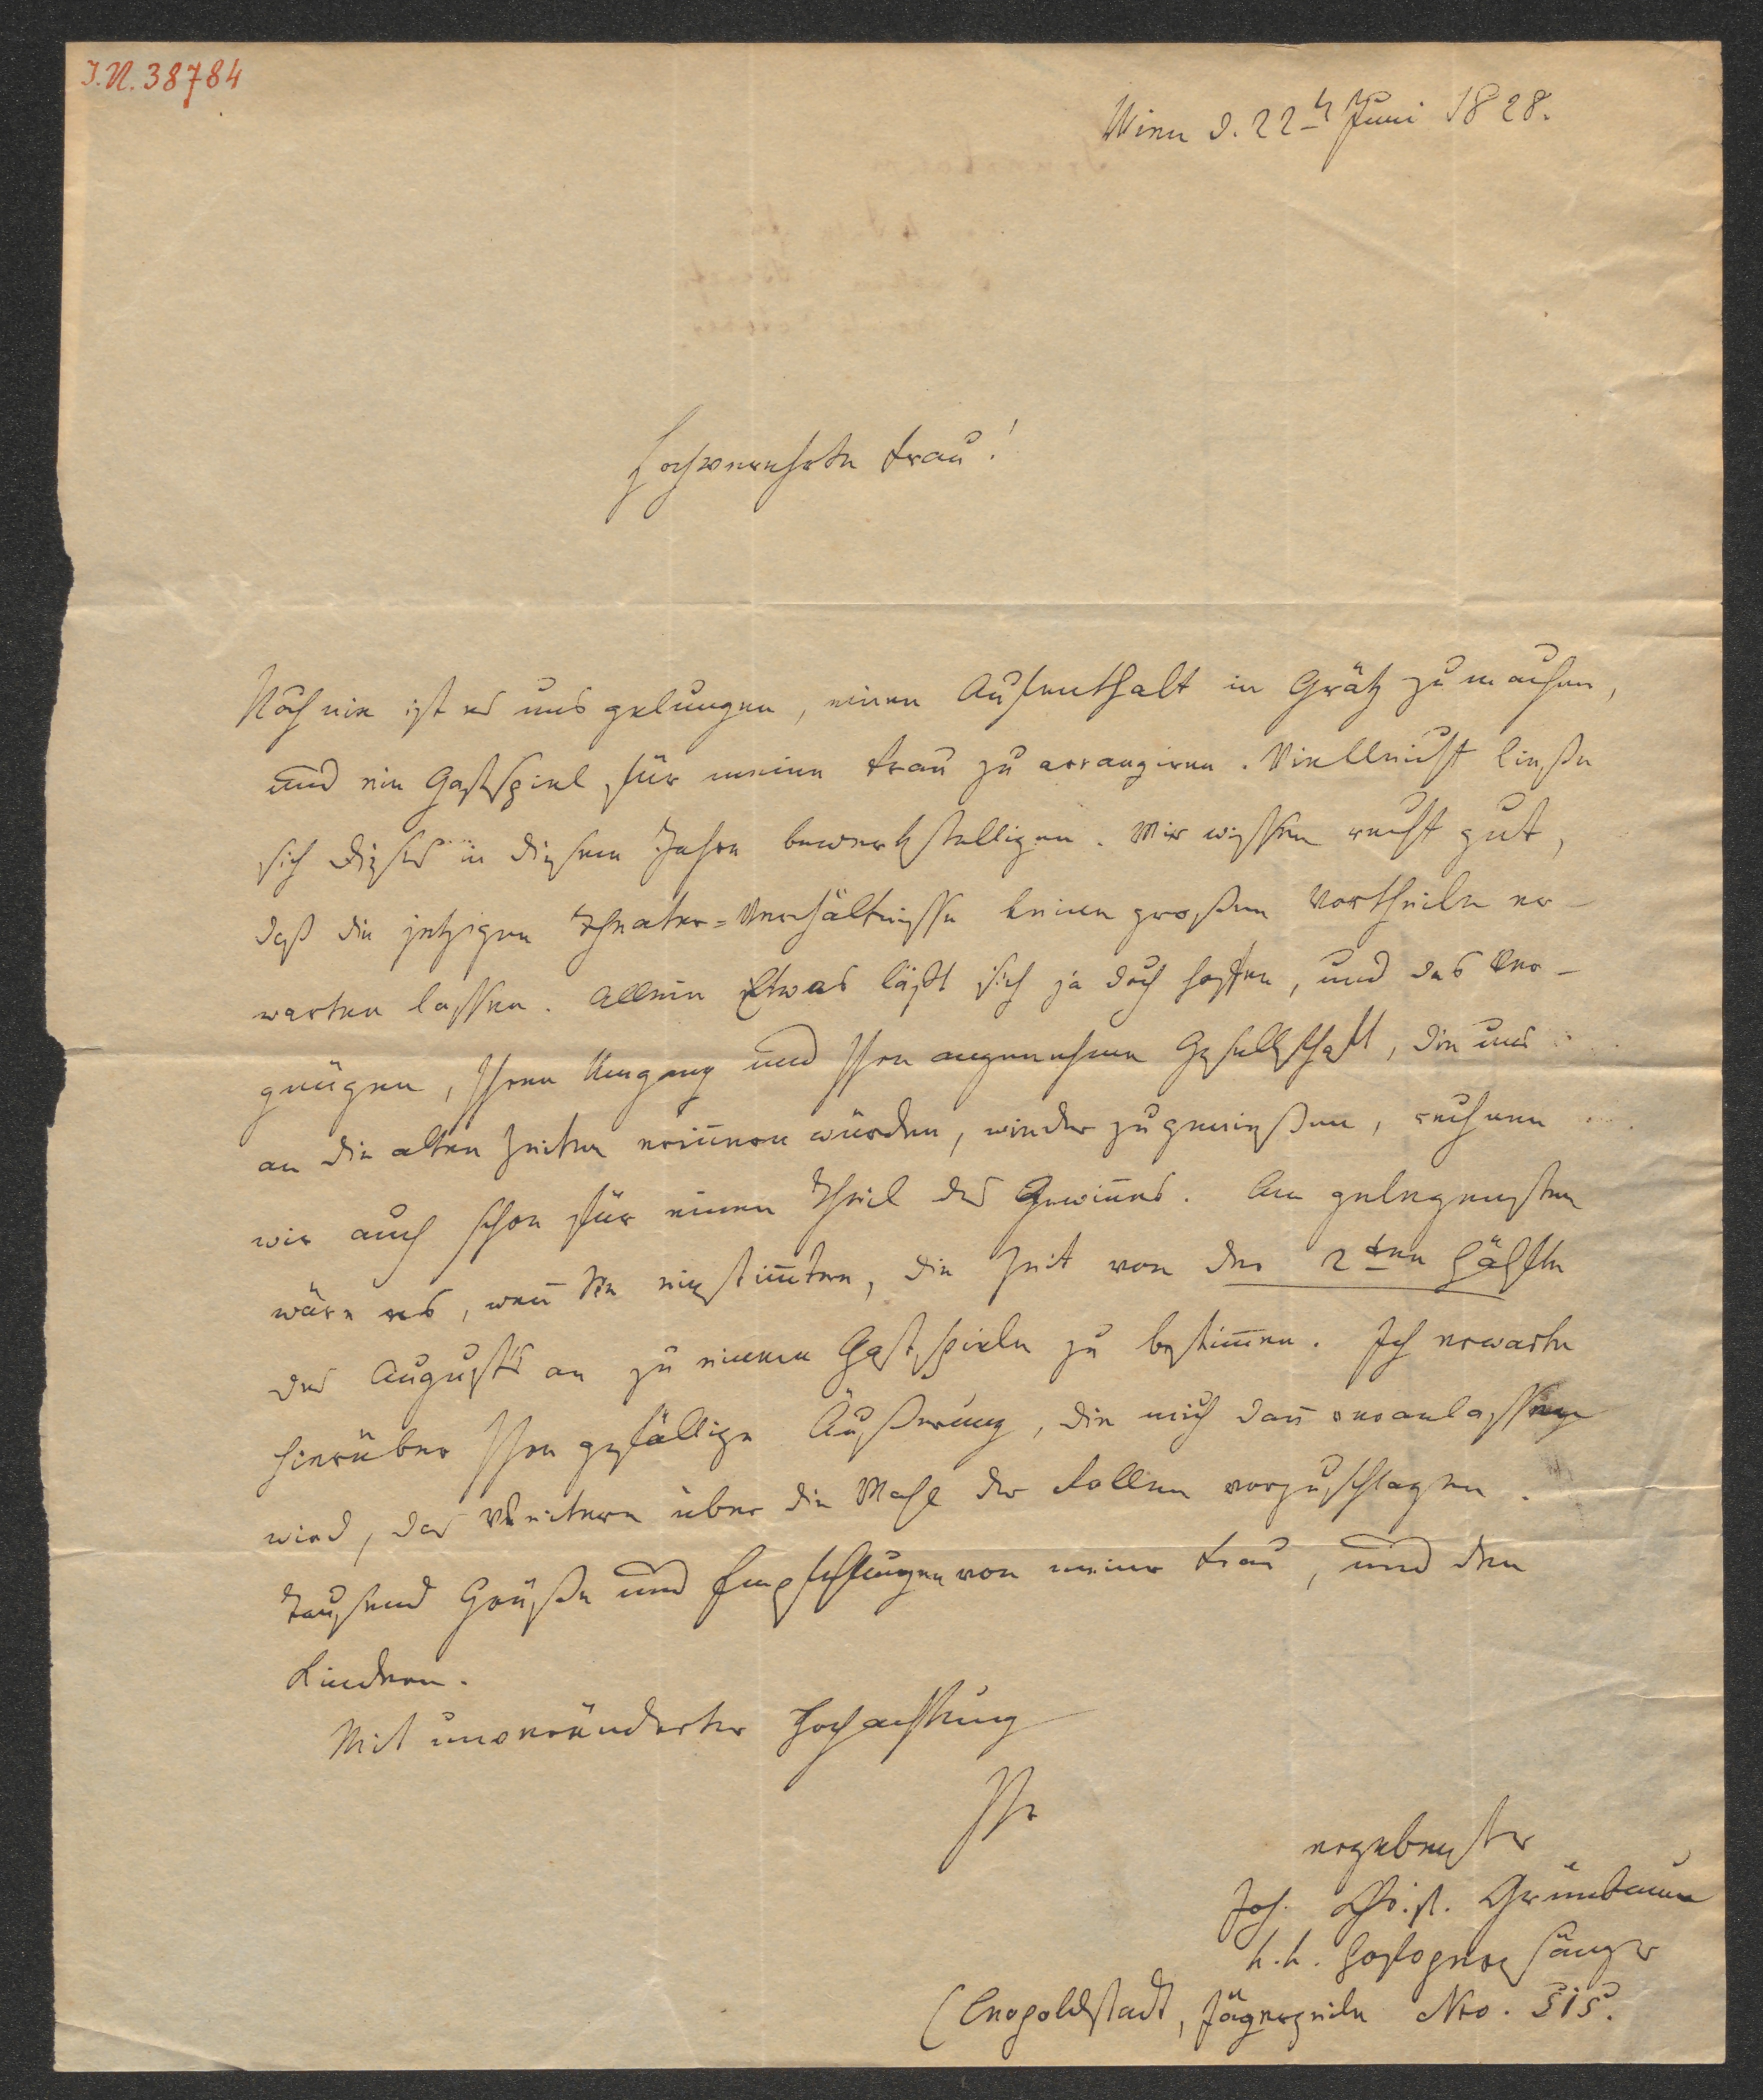 I.N. 38784
Wien d. 22t Juni 1828.
Hochverehrte Frau!
Noch nie ist es uns gelungen, einen Aufenthalt in Grätz zu machen,
und ein Gastspiel für meine Frau zu arrangiren. Vielleicht ließe
sich dieses in diesem Jahre bewerkstelligen. Wir wissen recht gut,
daß die jetzigen Theater=Verhältnisse keine großen Vortheile er-
warten lassen. Allein Etwas läßt sich ja doch hoffen, und das Ver-
gnügen, Ihren Umgang und Ihre angenehme Gesellschaft, die uns
an die alten Zeiten erin̄ern würden, wieder zu genießen, rechnen
wir auch schon für einen Theil des Gewin̄es. Am gelegensten
wäre es, wen̄ Sie einstim̄ten, die Zeit von der 2ten Hälfte
des Augusts an zu einem Gastspiele zu bestim̄en. Ich erwarte
hierüber Ihre gefällige Äußerung, die mich dan̄ veranlassen
wird, das Weitere über die Wahl der Rollen vorzuschlagen.
Tausend Grüße und Empfehlungen von meiner Frau, und den
Kindern.
Mit unveränderter Hochachtung
Ihr
ergebenster
Joh. Christ. Grünbaum
k.k. Hofopernsänger
(Leopoldstadt, Jägerzeile Nro. 515.